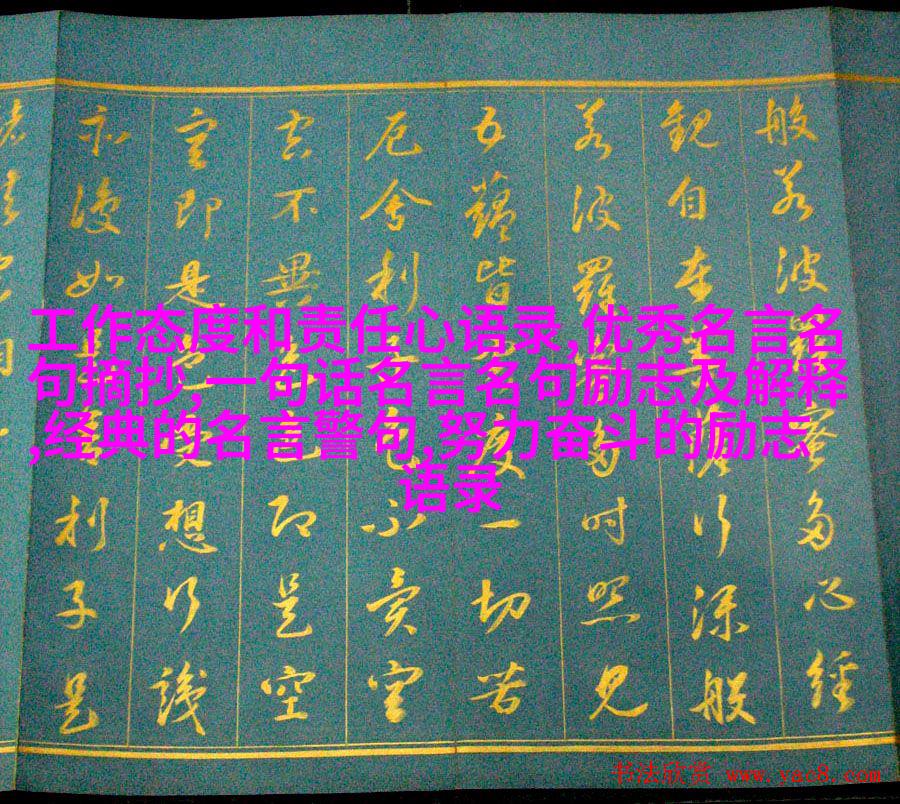 般若波羅蜜多心經
觀自在菩薩行深般
若波羅蜜多時照見
五蘊皆空度一切苦
厄舍利子色不異空
空不異色色即是空
空即是色受想行識
亦復如是舍利子是
工作态度和责任心语录,优秀名言名
句摘抄,一句话名言名句励志及解释
,经典的名言警句,努力奋斗的励志
语录
书法欣赏 www.yac8.com